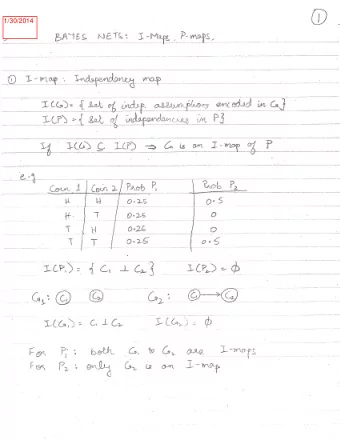 1/30/2014
1
BAYES NETS: I-Maps, P-maps.
① I-map: Independency map
I(G) = { set of indep. assumptions encoded in G }
I(P) = { set of independencies in P }
If I(G) ⊆ I(P) ⇒ G is an I-map of P
e.g
Coin 1 Coin 2 Prob P₁ Prob P₂
H H 0.25 0.5
H T 0.25 0
T H 0.25 0
T T 0.25 0.5
I(P₁) = { C₁ ⊥ C₂ } I(P₂) = ϕ
G₁: C₁ C₂ G₂: C₁ → C₂
I(G₁) = C₁ ⊥ C₂ I(G₂) = ϕ
For P₁: both G₁ & G₂ are I-maps
For P₂: only G₂ is an I-map